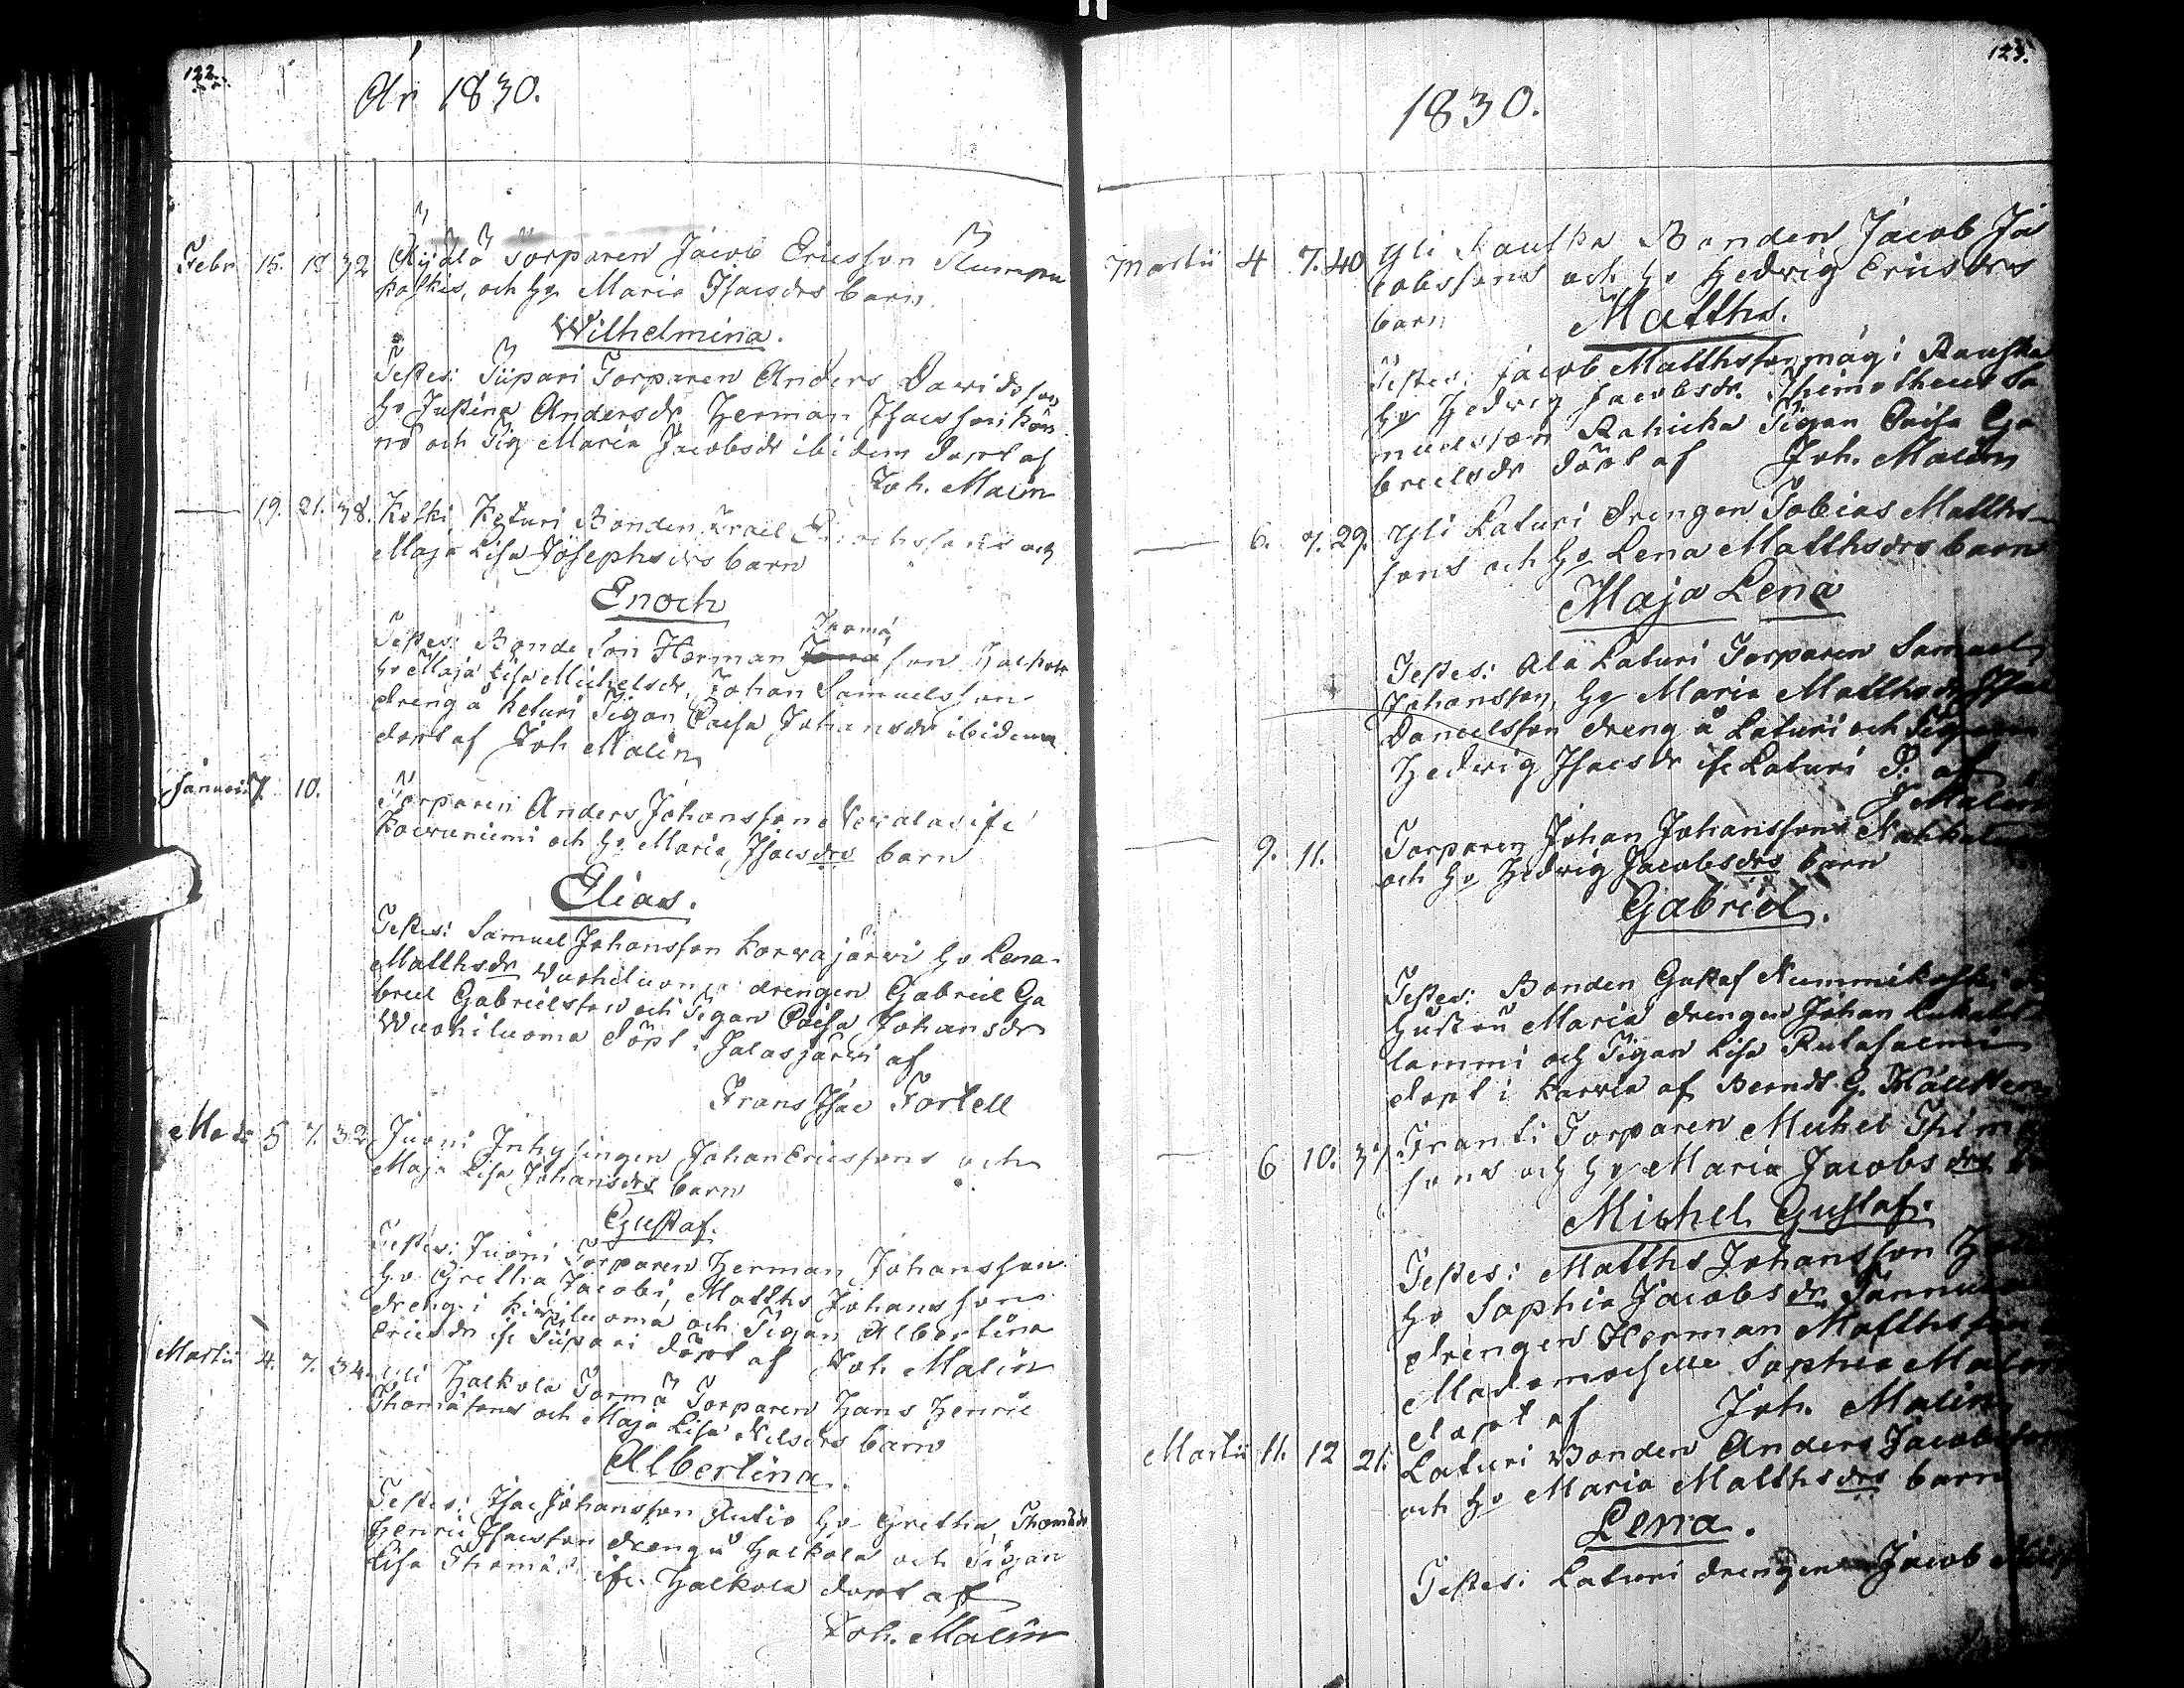 122.
År 1830.
Febr 15. 18 32 Torparen Jacob Ericsson Rumpu
koskis, och h. Maria Isacsdrs barn
Wilhelmina.
Testes: Siipari Torparen Anders Davidsson
h. Justina Andersdr Herman Isacsson
och Pig. Maria Jacobsdr ibidem döpt af
Joh. Malin
19. 21. 38. Koski Keturi Bonden Israel Enochssons och
Maja Lisa Josephsdrs barn
Enoch
Thomæ
Testes: Bonde Son Herman son Halkola
h. Maja Lisa Michelsdr, Johan Samuelsson
dreng å Keturi Pigan Caisa Johansdr ibidem
döpt af Joh Malin
Januari 7. 10.
Torparen Anders Johanssons
och h. Maria Isacsdrs barn
Elias.
Testes: Samuel Johansson Korwajärwi h. Lena
Matthsdr Wuohiluoma drengen Gabriel Ga
briel Gabrielsson och Pigan Caisa Johansdr
Wuohiluoma döpt i Jalasjärwi af
Frans Isac Fortell
5 7. 32 Juoni Inhysingen Johan Ericssons och
Maja Lisa Johansdrs barn
Gustaf.
Testes: Juoni Torparen Herman Johansson
h. Gretha Jacobi, Matths Johansson
dreng i Kiwiluoma och Pigan Albertina
Ericsdr ifr Siipari döpt af Joh. Malin
Martii 4. 7. 34. Yli Halkola Torparen Hans Henric
Thomæsons och Maja Lisa Nilsdrs barn
Albertina.
Testes: Isac Johansson Rutio h. Gretha Thomædr
Henric Isacsson dreng å Halkola och Pigan
Lisa Thomæ ifr. Halkola döpt af
Joh. Malin
123.
1830.
Martii 4 7. 40 Yli Rauska Bonden Jacob Ja
cobssons och h. Hedwig Ericsdrs
barn Matths.
Testes: Jacob Matthsson måg i Rauska
h. Hedwig Jacobsdr. Thimotheus Sa
muelsson Rahicka Pigan Caisa Ga
brielsdr döpt af Joh. Malin
6. 7. 29. Yli Laturi Drengen Tobias Matths
sons och h. Lena Matthsdrs barn
Maja Lena
Testes: Ala Laturi Torparen Samuel
Johansson, h. Maria Matthsdr Isac
Danielsson dreng å Laturi och Pigan
Hedwig Isacsdr ifr Laturi D. af
J Malin
9. 11. Torparen Johan Johanssons
och h. Hedwig Jacobsdrs barn
Gabriel.
Testes: Bonden Gustaf Nummikoski
Hustru Maria drengen Johan
lammi och Pigan Lisa
döpt i Karwia af Berndt G.
6 10. 37 Franti Torparen Michel
sons och h. Maria Jacobsdrs
Michel Gustaf.
Testes: Matths Johansson
h. Sophia Jacobsdr
drengen Herman Matthsson
Mademoiselle Sophia Malin
döpt af Joh. Malin
Martii 11. 12 21. Laturi Bonden Anders Jacobssons
och h. Maria Matthsdrs barn
Lena.
Testes: Laturi drengen Jacob